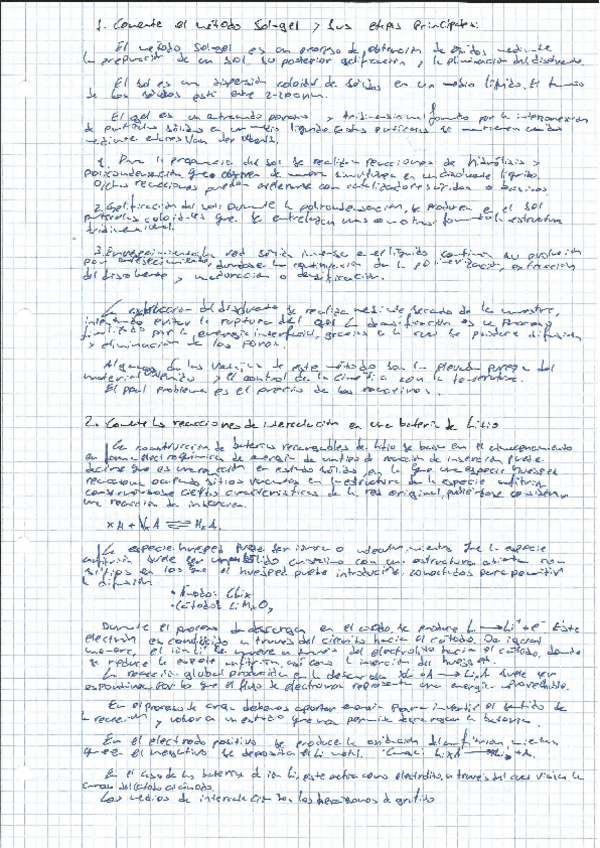 1. Comente el método Sol-gel y sus etapas principales:
El método Sol-gel es un proceso de obtención de óxidos mediante
la preparación de un sol, su posterior gelificación y la eliminación del disolvente.
El sol es una dispersión coloidal de sólidos en un medio líquido. El tamaño
de los sólidos está entre 2-200nm.
El gel es un entramado poroso y tridimensional formado por la interconexión
de partículas sólidas en un medio líquido. Estas partículas se mantienen unidas
mediante
1. Para la preparación del sol se realizan reacciones de hidrólisis y
policondensación que ocurren de manera simultánea en un disolvente líquido.
Dichas reacciones pueden acelerarse con catalizadores ácidos o básicos.
2. Gelificación del sol: Durante la policondensación, se producen en el sol
partículas coloidales que se entrelazan unas con otras formando la estructura
tridimensional.
3. Envejecimiento: la red sólida inmersa en el líquido continua su evolución
por envejecimiento, la continuación de la polimerización, extracción
del disolvente y maduración o densificación.
La extracción del disolvente se realiza mediante secado de la muestra,
intentando evitar la ruptura del gel. La densificación es un proceso
por la energía interfacial, gracias a la cual se produce difusión
y eliminación de los poros.
Algunas de las ventajas de este método son la elevada pureza del
material obtenido y el control de la cinética con la temperatura.
El ppal problema es el precio de los reactivos.
2. Comente las reacciones de intercalación en una batería de Litio
La construcción de baterías recargables de litio se basa en el almacenamiento
en forma electroquímica de energía de un tipo de reacción de inserción. Puede
decirse que es una reacción en estado sólido, en la que una especie huésped
reacciona ocupando sitios vacantes en la estructura de la especie anfitriona
conservándose ciertas características de la red original, pudiéndose considerar
una reacción de inserción.
La especie huésped puede ser iónica o molecular, mientras que la especie
anfitrión suele ser un sólido cristalino con una estructura abierta con
en los que el huésped pueda introducirse, conectados para permitir
la difusión.
• Ánodo:
• Cátodo:
Durante el proceso de descarga en el ánodo, se produce Li → Li⁺ + e⁻ Este
electrón es conducido a través del circuito hacia el cátodo. De igual
manera, el ión Li⁺ se mueve a través del electrolito hacia el cátodo, donde
se reduce la especie anfitrión, así como la inserción del huésped.
La reacción global producida en la descarga suele ser
espontánea, por lo que el flujo de electrones representa una energía aprovechable.
En el proceso de carga debemos aportar energía para invertir el sentido de
la reacción y volver a un estado que nos permita descargar la batería.
En el electrodo positivo se produce la oxidación del anfitrión, mientras
que en el negativo se deposita el Li
En el caso de las baterías de ión Li, este actúa como electrolito, a través del cual viaja la
carga del cátodo al ánodo.
Los medios de intercalación son